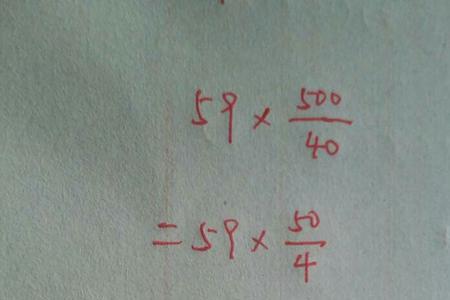 59 × 500/40
= 59 × 50/4